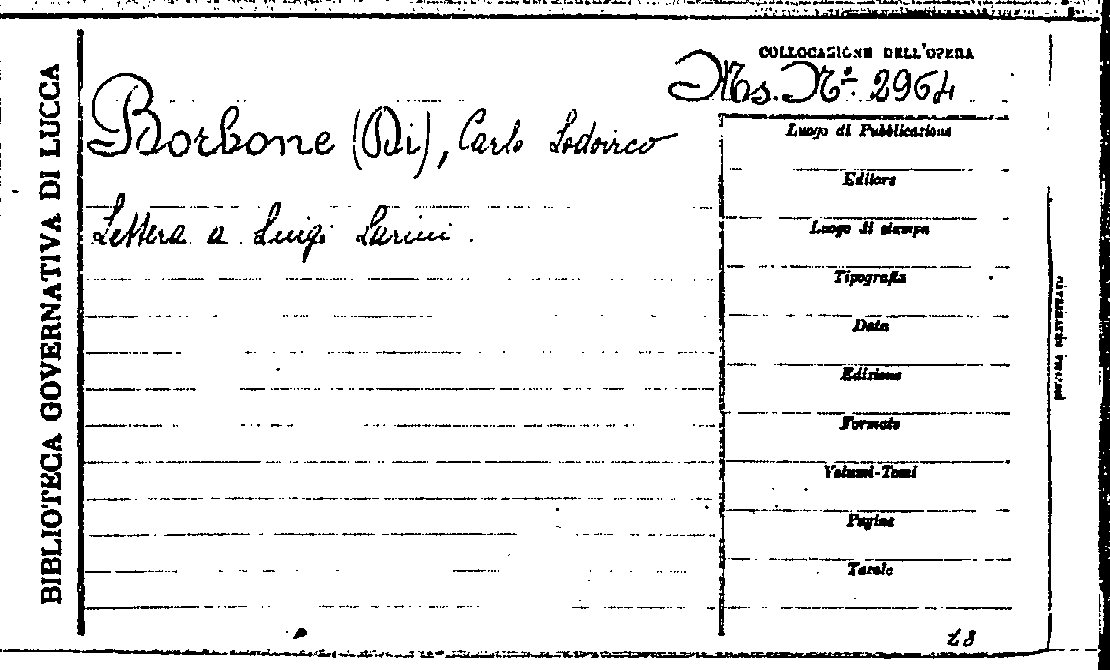 BIBLIOTECA GOVERNATIVA DI LUCCA
COLLOCAZIONE DELL'OPERA
Ms. N.º 2964
Borbone (Di), Carlo Lodovico
Lettera a Luigi
Luogo di Pubblicazione
Editore
Luogo di stampa
Tipografia
Data
Edizione
Formato
Volumi-Tomi
Pagine
Tavole